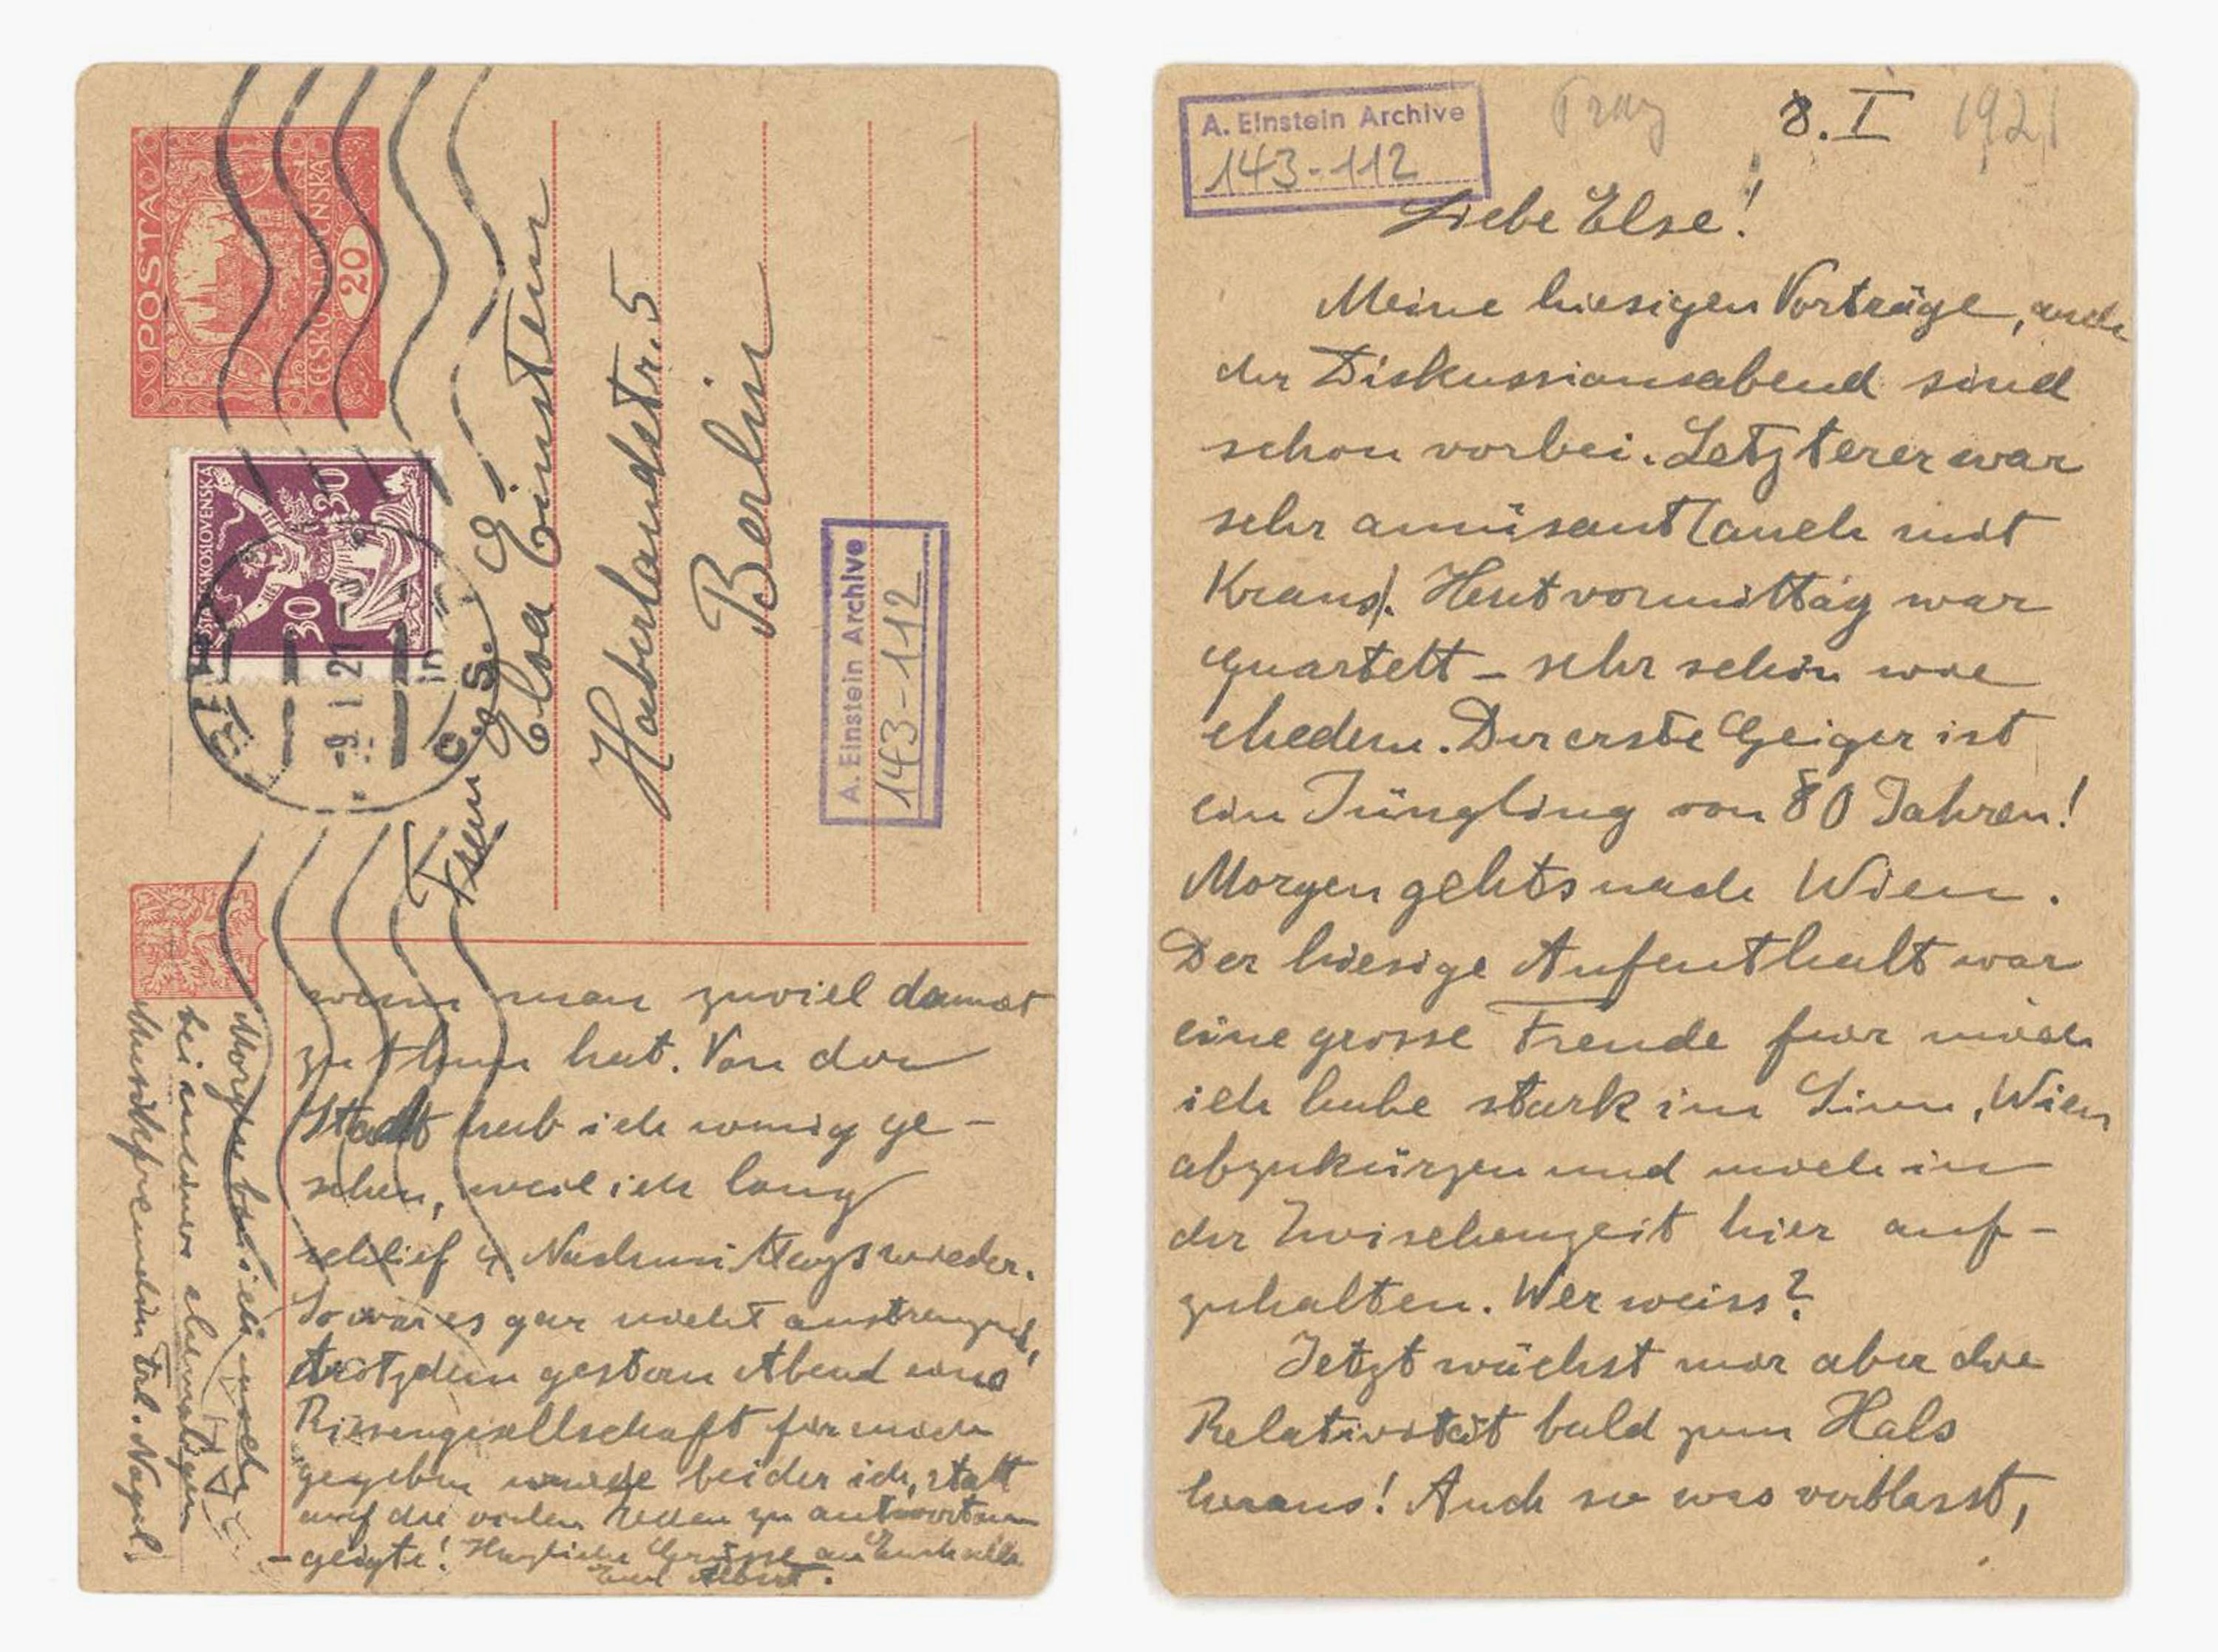 POSTA
ČESKOSLOVENSKÁ
20
ČESKOSLOVENSKÁ
30
30
-9.I.21
Frau
Elsa Einstein
Haberlandstr. 5
Berlin
A. Einstein Archive
143-112
wenn man zuviel damit
zu thun hat. Von der
Stadt hab ich wenig ge-
sehen, weil ich lang
schlief u. Nachmittags wieder.
So war es gar nicht anstrengend,
trotzdem gestern Abend eine
Riesengesellschaft für mich
gegeben wurde bei der ich, statt
auf die vielen Reden zu antworten
- geigte! Herzliche Grüsse an Euch alle
Euer Albert.
Morgen bin ich noch
bei meiner ehemaligen
Musikfreundin Frl. Nagel.
A. Einstein Archive
143-112
Prag 8. I 1921
Liebe Else!
Meine hiesigen Vorträge, auch
der Diskussionsabend sind
schon vorbei. Letzterer war
sehr amüsant (auch mit
Kraus). Heut vormittag war
Quartett – sehr schön wie
ehedem. Der erste Geiger ist
ein Jüngling von 80 Jahren!
Morgen gehts nach Wien.
Der hiesige Aufenthalt war
eine grosse Freude für mich
ich habe stark im Sinn, Wien
abzukürzen und mich in
der Zwischenzeit hier auf-
zuhalten. Wer weiss?
Jetzt wächst mir aber die
Relativität bald zum Hals
heraus! Auch so was verblasst,